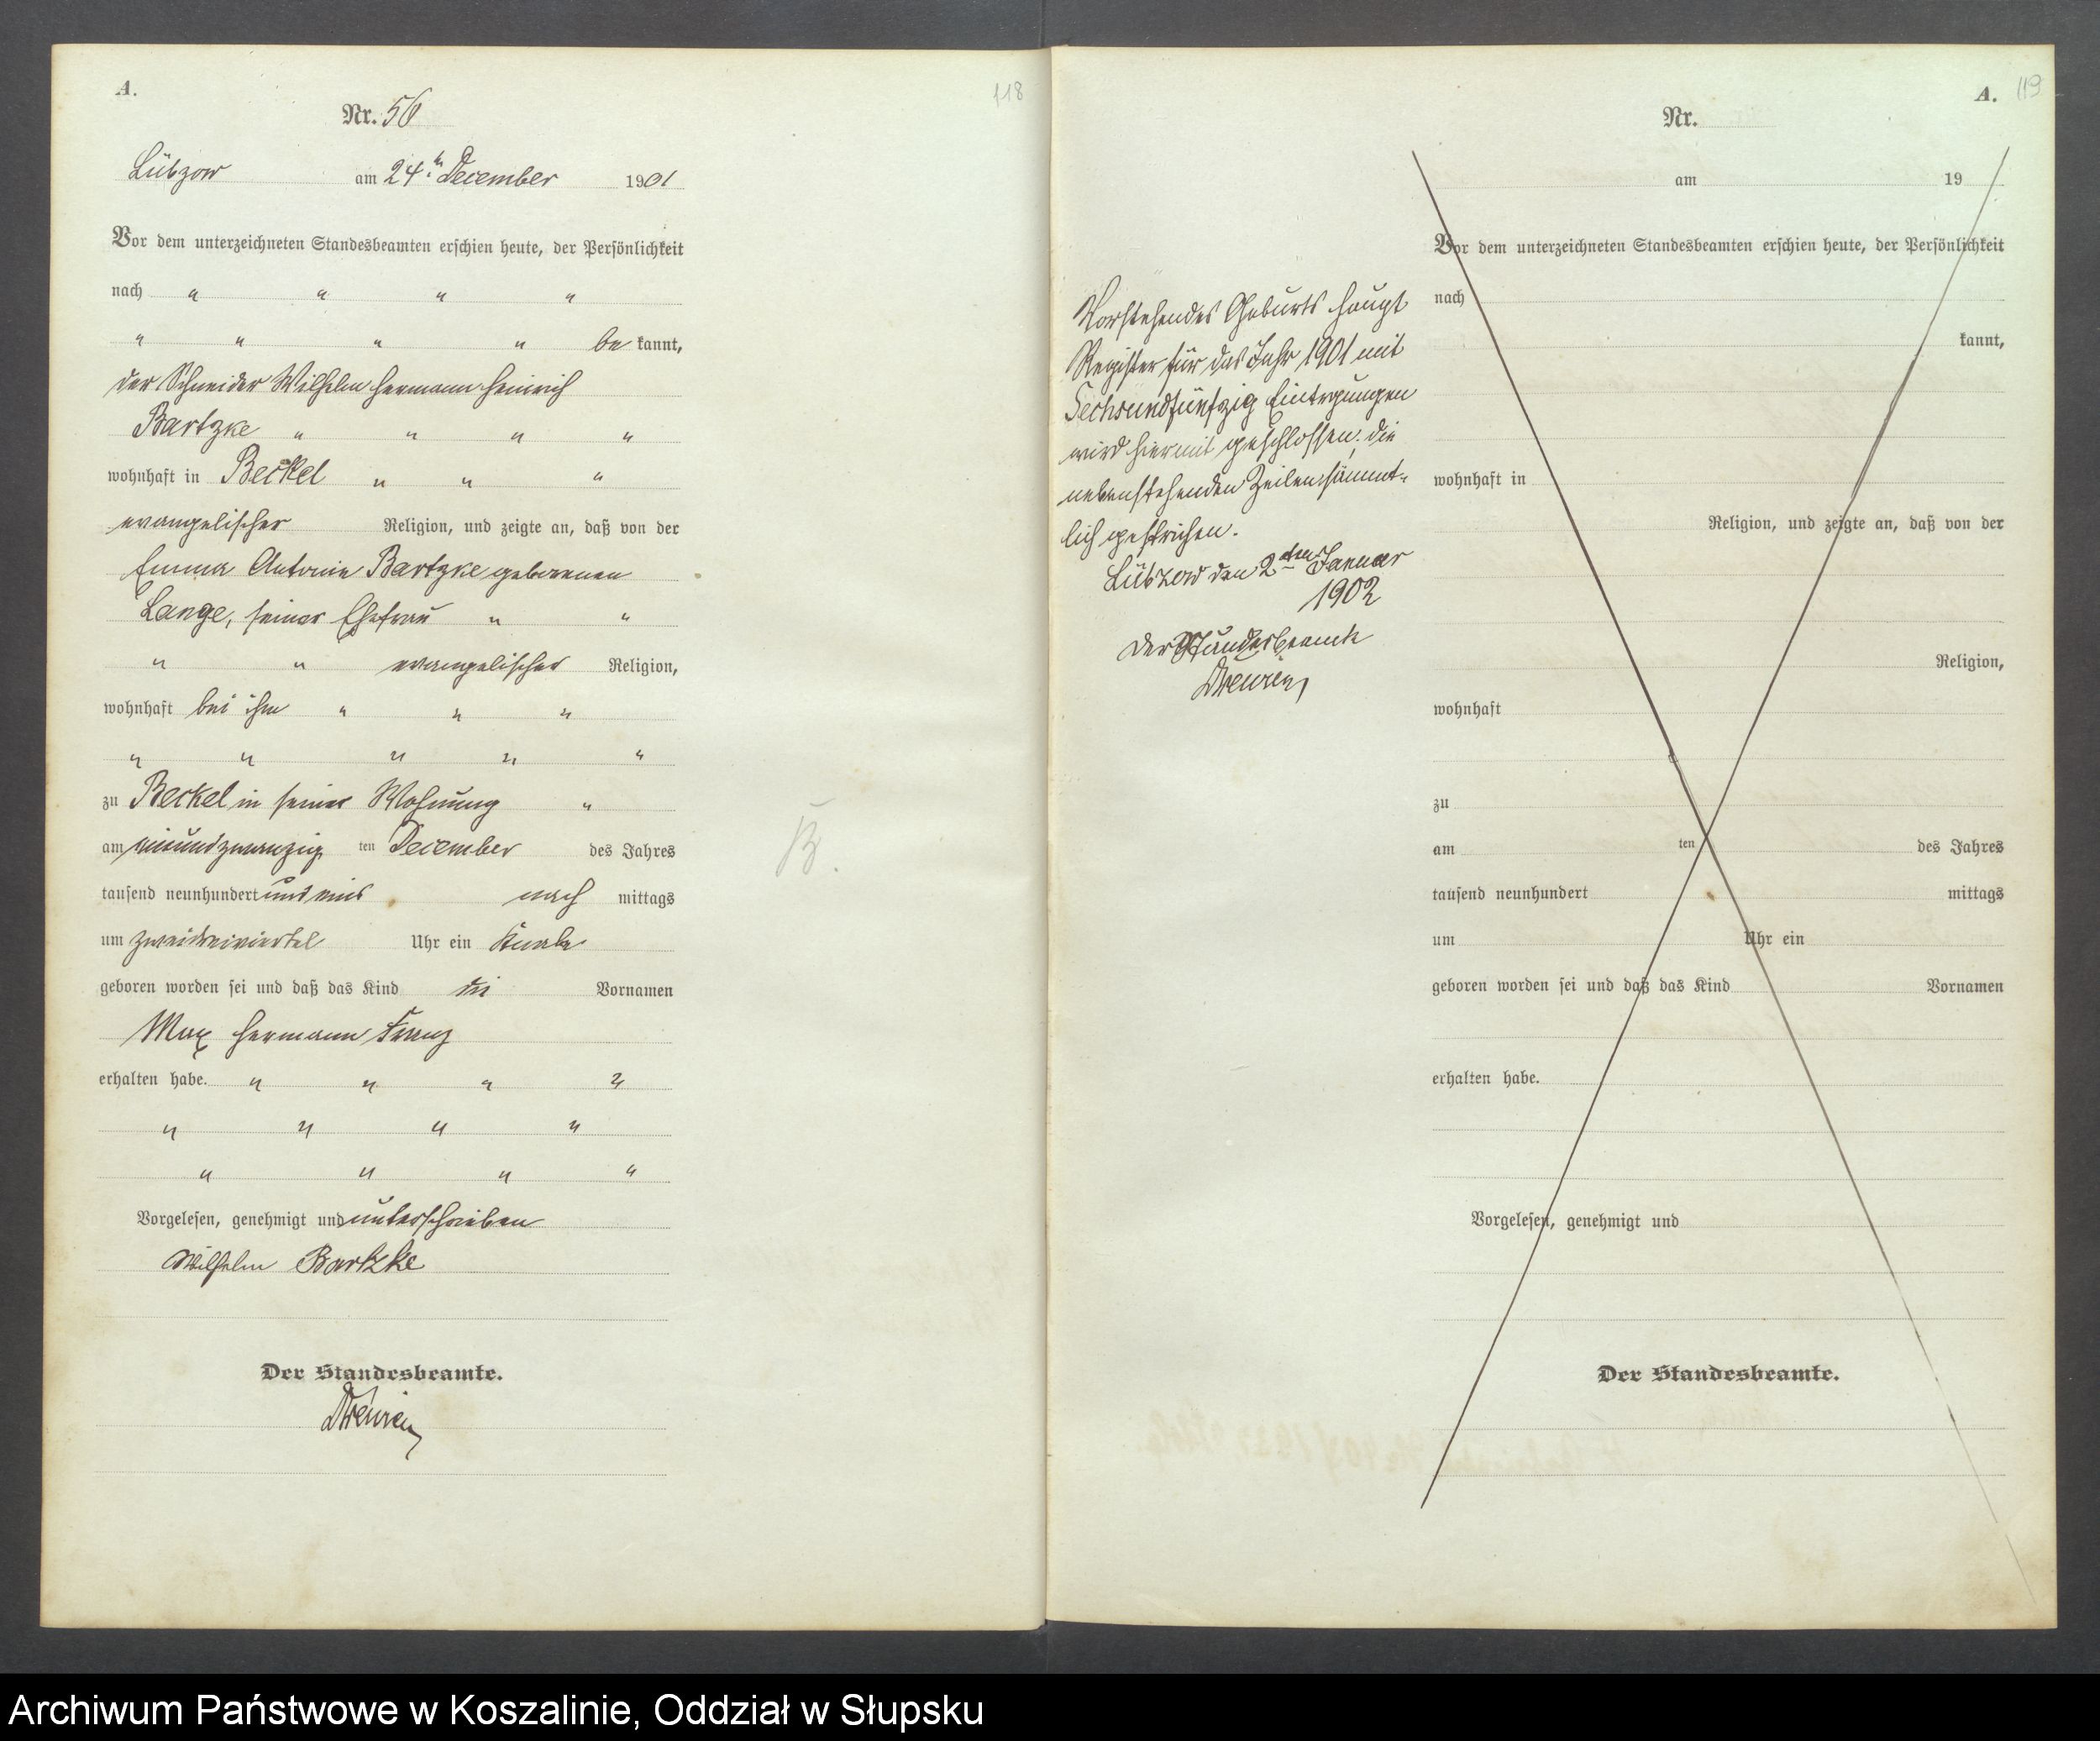 A.
118
Nr. 56
Lübzow am 24ten December 1901
Vor dem unterzeichneten Standesbeamten erschien heute, der Persönlichkeit
nach " " " "
" " " " be kannt,
der Schneider Wilhelm Hermann Heinrich
Bartzke " " " "
wohnhaft in Beckel " " "
evangelischer Religion, und zeigte an, daß von der
Emma Antonie Bartzke geborenen
Lange, seiner Ehefrau " "
" " evangelischer Religion,
wohnhaft bei ihm " " "
" " " " "
zu Beckel in seiner Wohnung "
am einundzwanzig ten December des Jahres
tausend neunhundert und eins nach mittags
um zweidreiviertel Uhr ein Knabe
geboren worden sei und daß das Kind die Vornamen
Max Hermann Franz
erhalten habe. " " " "
" " " "
" " " "
Vorgelesen, genehmigt und unterschrieben
Wilhelm Bartzke
Der Standesbeamte.
B.
A.
119
Nr.
am 19
Vor dem unterzeichneten Standesbeamten erschien heute, der Persönlichkeit
nach
kannt,
wohnhaft in
Religion, und zeigte an, daß von der
Religion,
wohnhaft
zu
am ten des Jahres
tausend neunhundert mittags
um Uhr ein
geboren worden sei und daß das Kind Vornamen
erhalten habe.
Vorgelesen, genehmigt und
Der Standesbeamte.
Vorstehendes Geburts Haupt
Register für das Jahr 1901 mit
Sechsundfünfzig Eintragungen
wird hiermit geschlossen; die
nebenstehenden Zeilen sämmt-
lich gestrichen.
Lübzow den 2ten Januar
1902
Der Standesbeamte
Archiwum Państwowe w Koszalinie, Oddział w Słupsku